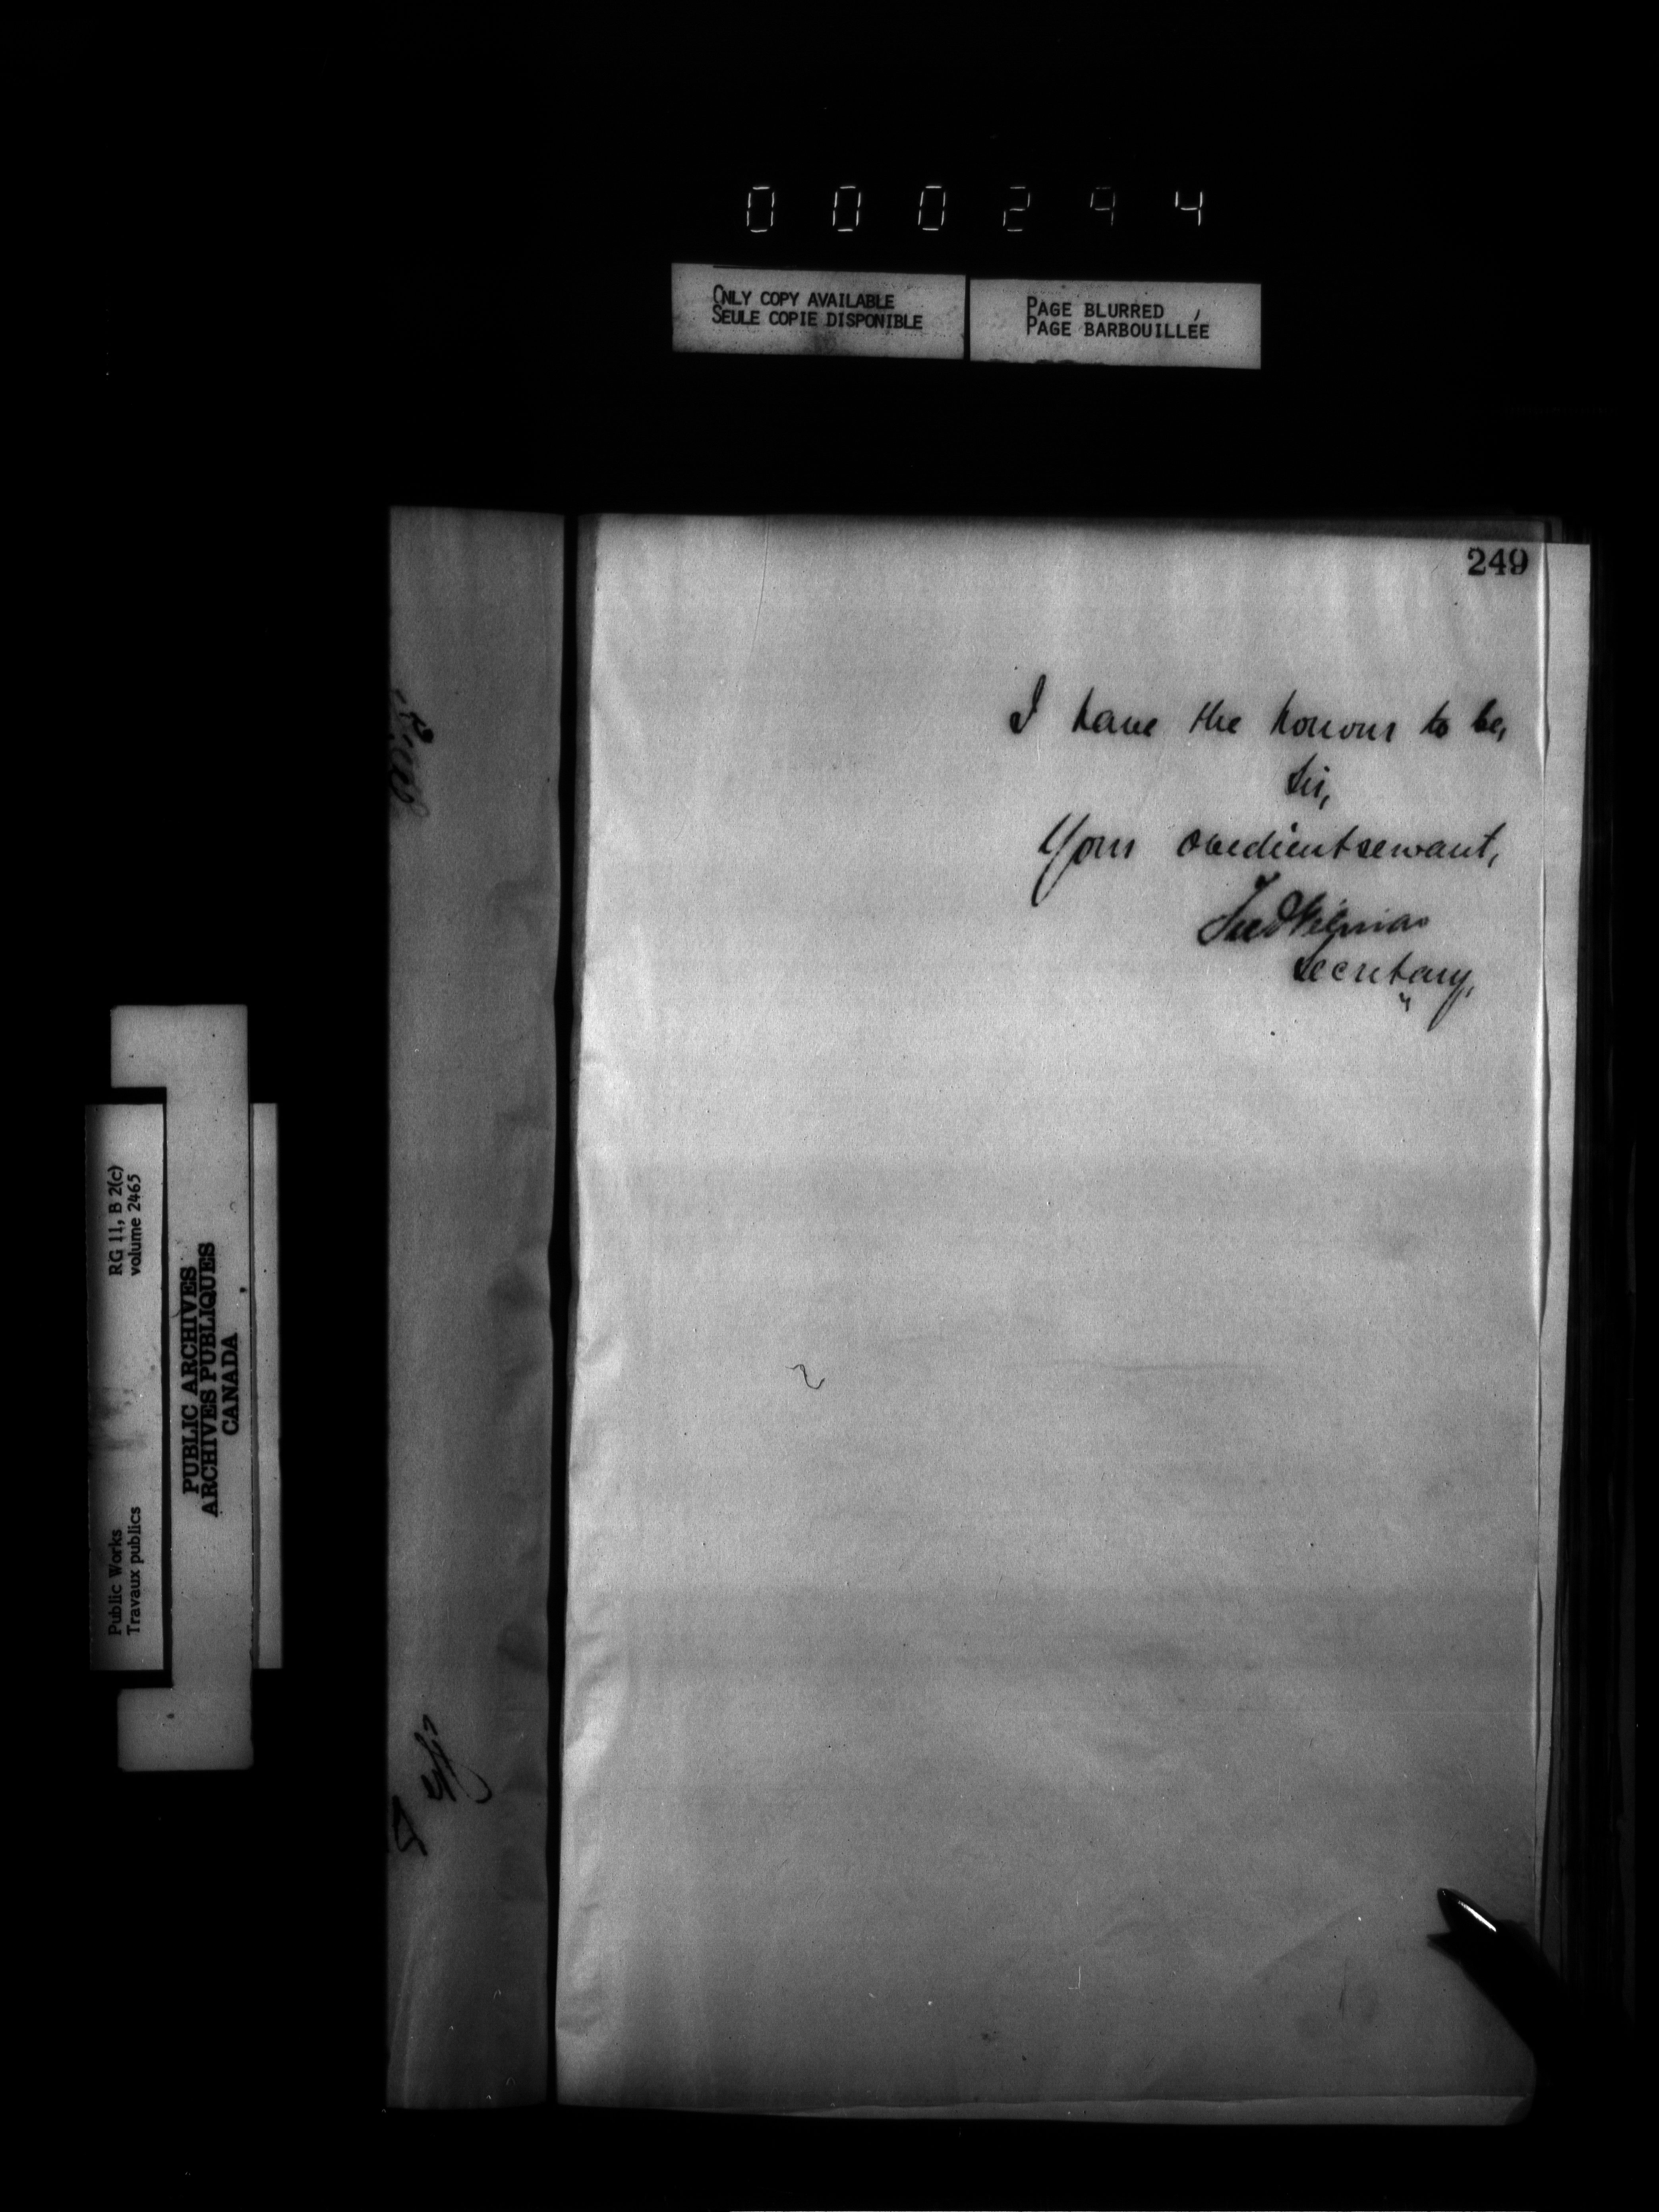 000294
ONLY COPY AVAILABLE
SEULE COPIE DISPONIBLE
PAGE BLURRED
PAGE BARBOUILLÉE
249
I have the honour to be,
Sir,
Your obedient servant,
Secretary,
RG 11, B 2(c)
volume 2465
Public Works
Travaux publics
PUBLIC ARCHIVES
ARCHIVES PUBLIQUES
CANADA